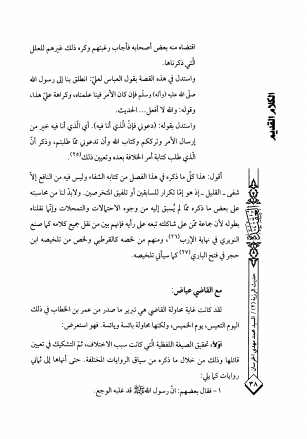 اقتضاه منه بعض أصحابه فأجاب رغبتهم وكره ذلك غيرهم للعلل
الّتي ذكرناها.
واستدل في هذه القصة بقول العباس لعليّ: انطلق بنا إلى رسول الله
صلّى الله عليه (وآله) وسلّم فإن كان الأمر فينا علمناه، وكراهة عليّ هذا،
وقوله: والله لا أفعل... الحديث.
واستدل بقوله: (دعوني فإنّ الّذي أنا فيه). أي الّذي أنا فيه خير من
إرسال الأمر وترككم وكتاب الله وأن تدعوني ممّا طلبتم، وذكر أنّ
الّذي طلب كتابة أمر الخلافة بعده وتعيين ذلك (٢٥).
أقول: هذا كلّ ما ذكره في هذا الفصل من كتابه الشفاء وليس فيه من النافع إلاّ
شَفى ـ القليل ـ إذ هو إمّا تكرار للسابقين أو تلفيق المتخرصين. ولابدّ لنا من محاسبته
على بعض ما ذكره ممّا لم يُسبق إليه من وجوه الاحتمالات والتمحلات وإنّما نقلناه
بطوله لأن جماعة ممّن على شاكلته تبعه على رأيه فإنهم بين من نقل جميع كلامه كما صنع
النويري في نهاية الإرب (٢٦) ومنهم من لخصه كالقرطبي ولخص من تلخيصه ابن
حجر في فتح الباري (٢٧) كما سيأتي تلخيصه.
مع القاضي عياض:
لقد كانت غاية محاولة القاضي هي تبرير ما صدر من عمر بن الخطاب في ذلك
اليوم التعيس، يوم الخميس، ولكنها محاولة بائسة ويائسة. فهو استعرض:
أوّلاً، تحقيق الصيغة اللفظية الّتي كانت سبب الاختلاف، ثمّ التشكيك في تعيين
قائلها وذلك من خلال ما ذكره من سياق الروايات المختلفة. حتى أنهاها إلى ثماني
روايات كما يلي:
١ - فقال بعضهم: انّ رسول الله ﷺ قد غلبه الوجع.
الكلام القديم
حديث الرزية (٢) / السيد محمد مهدي الخرسان
٣٨